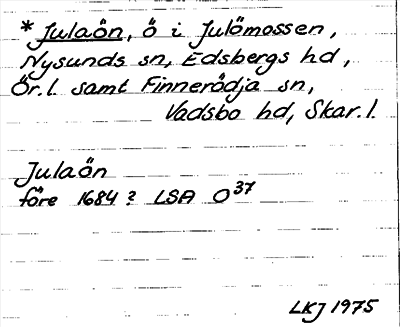 * Julaön, ö i Julömossen,
Nysunds sn, Edsbergs hd,
Ör. l. samt Finnerödja sn,
Vadsbo hd, Skar. l.
Julaön
före 1684? LSA O37
LKJ 1975